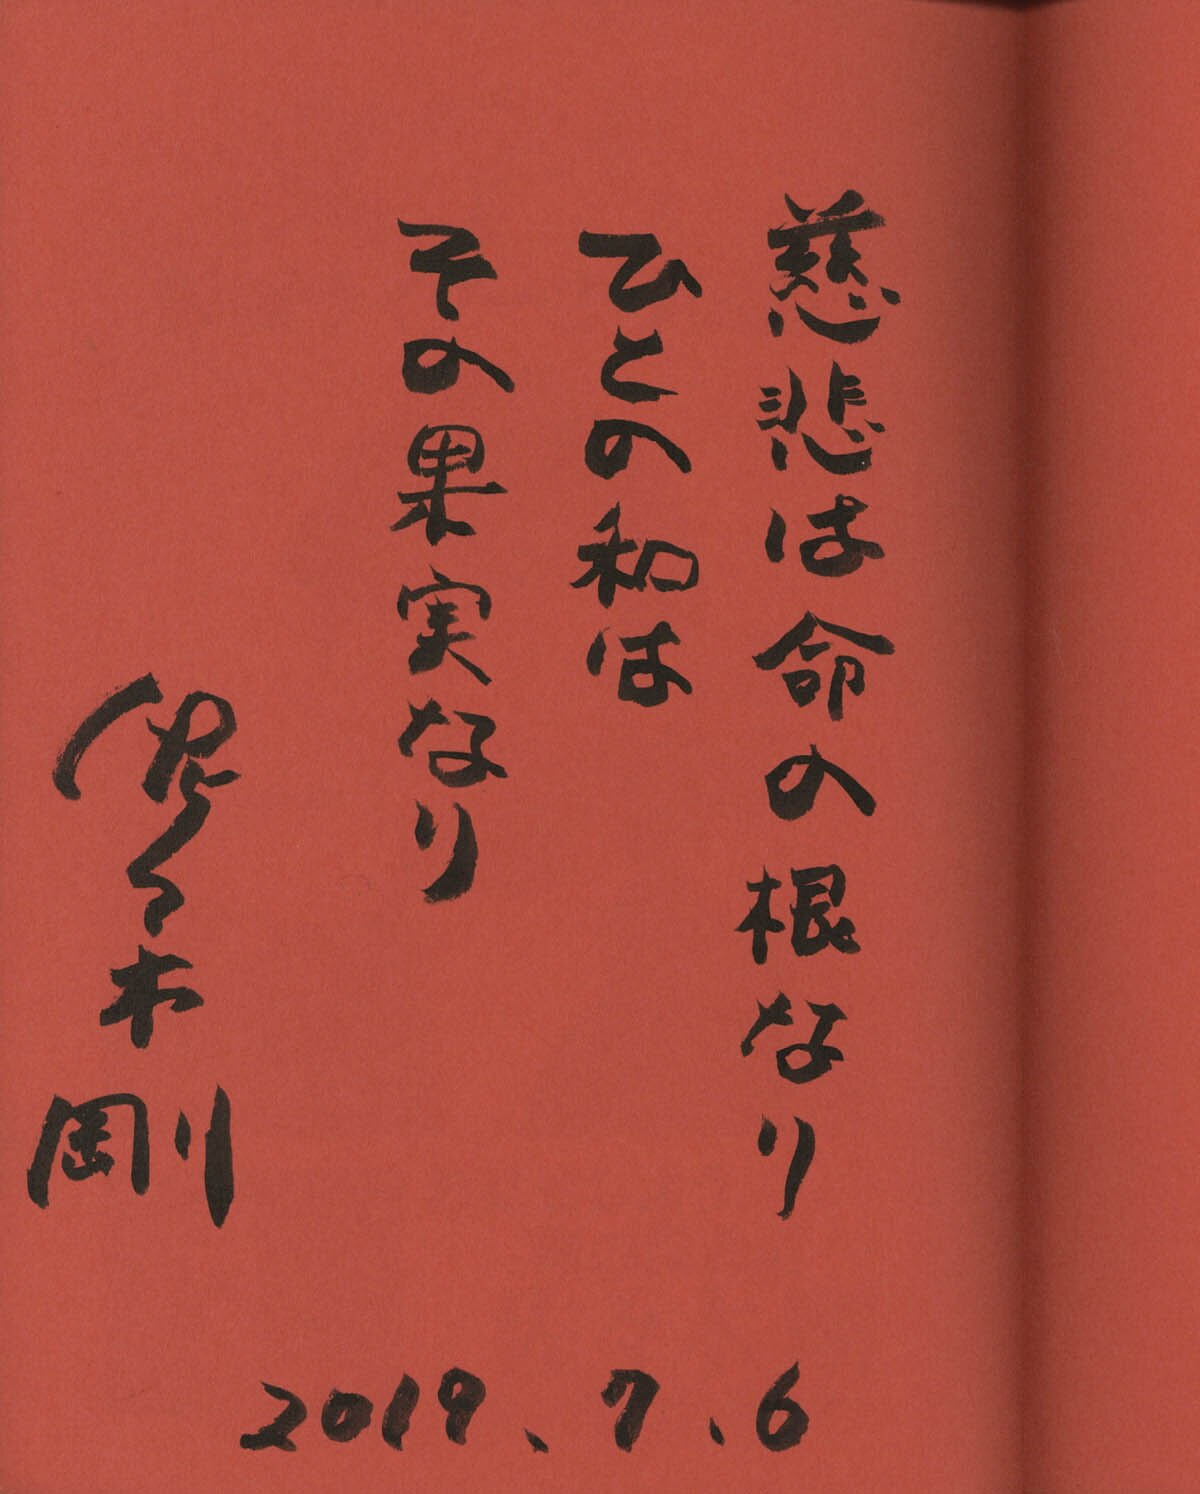 慈悲は命の根なり
ひとの和は
その果実なり
佐々木
剛
2019.7.6